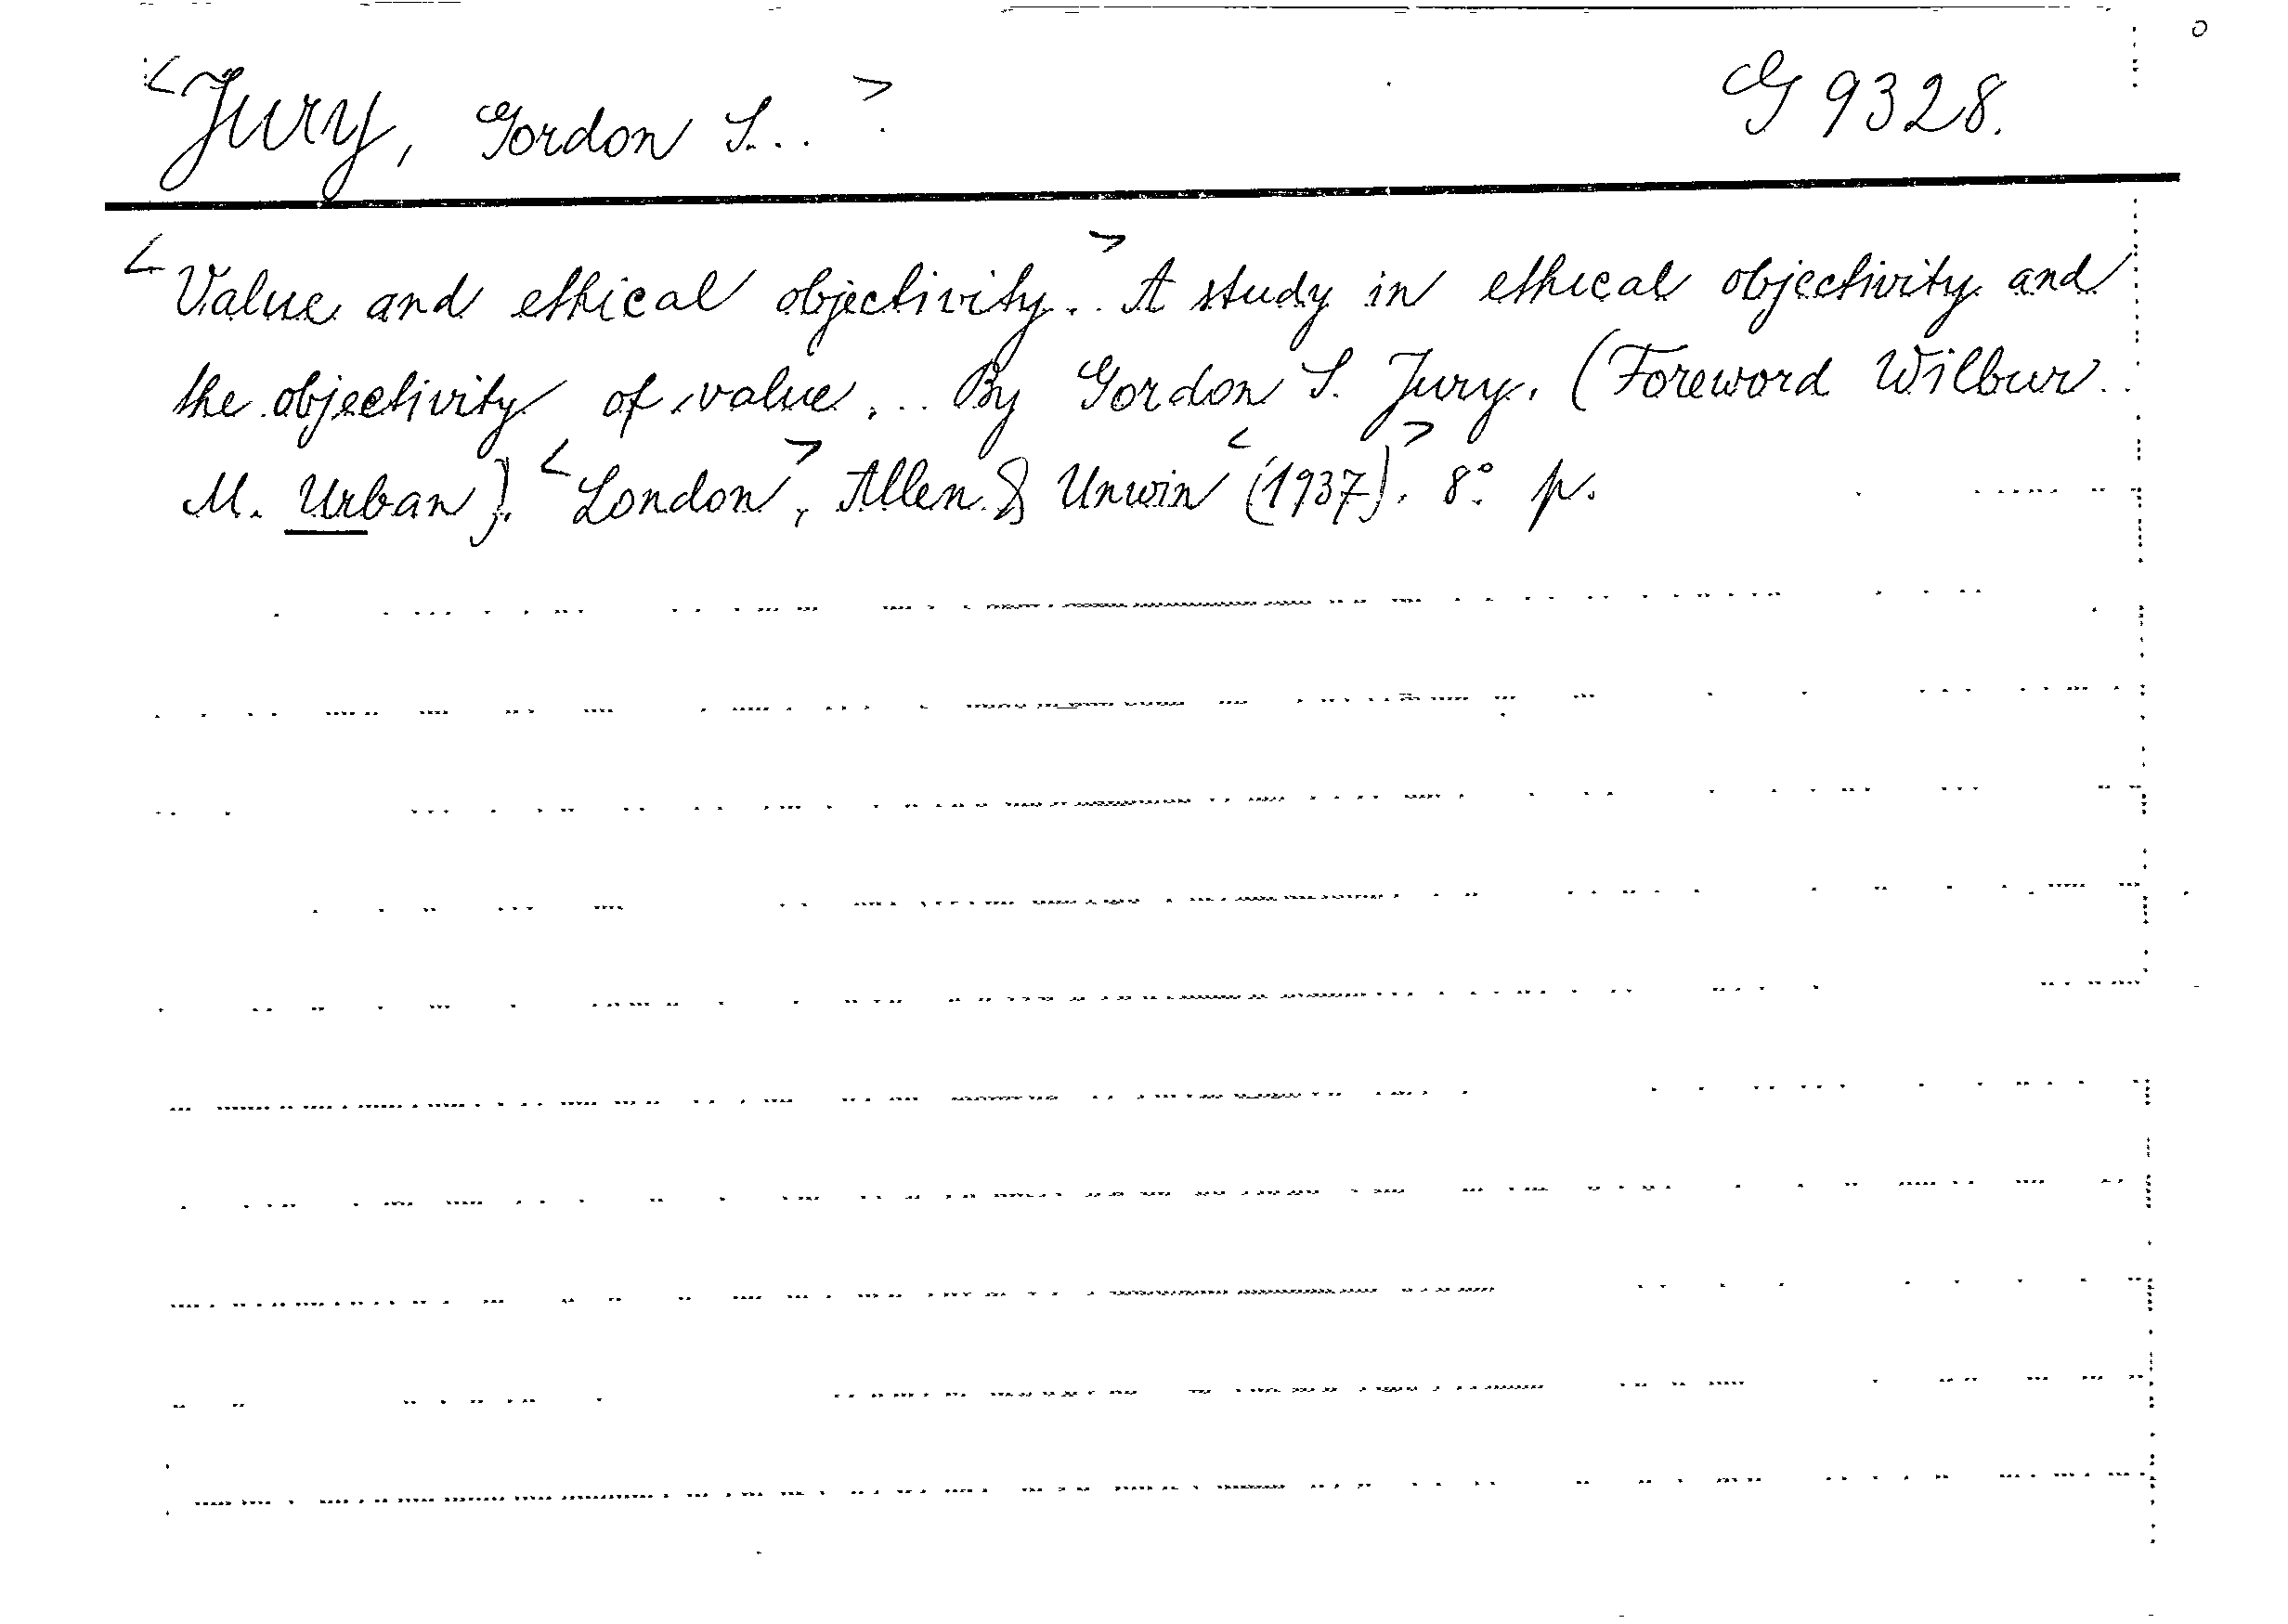 <Jury, Gordon S..> G 9328.
<Value and ethical objectivity.> A study in ethical objectivity and
the objectivity of value. By Gordon S. Jury. (Foreword Wilbur
M. Urban). <London>, Allen & Unwin <(1937)>. 8° p.